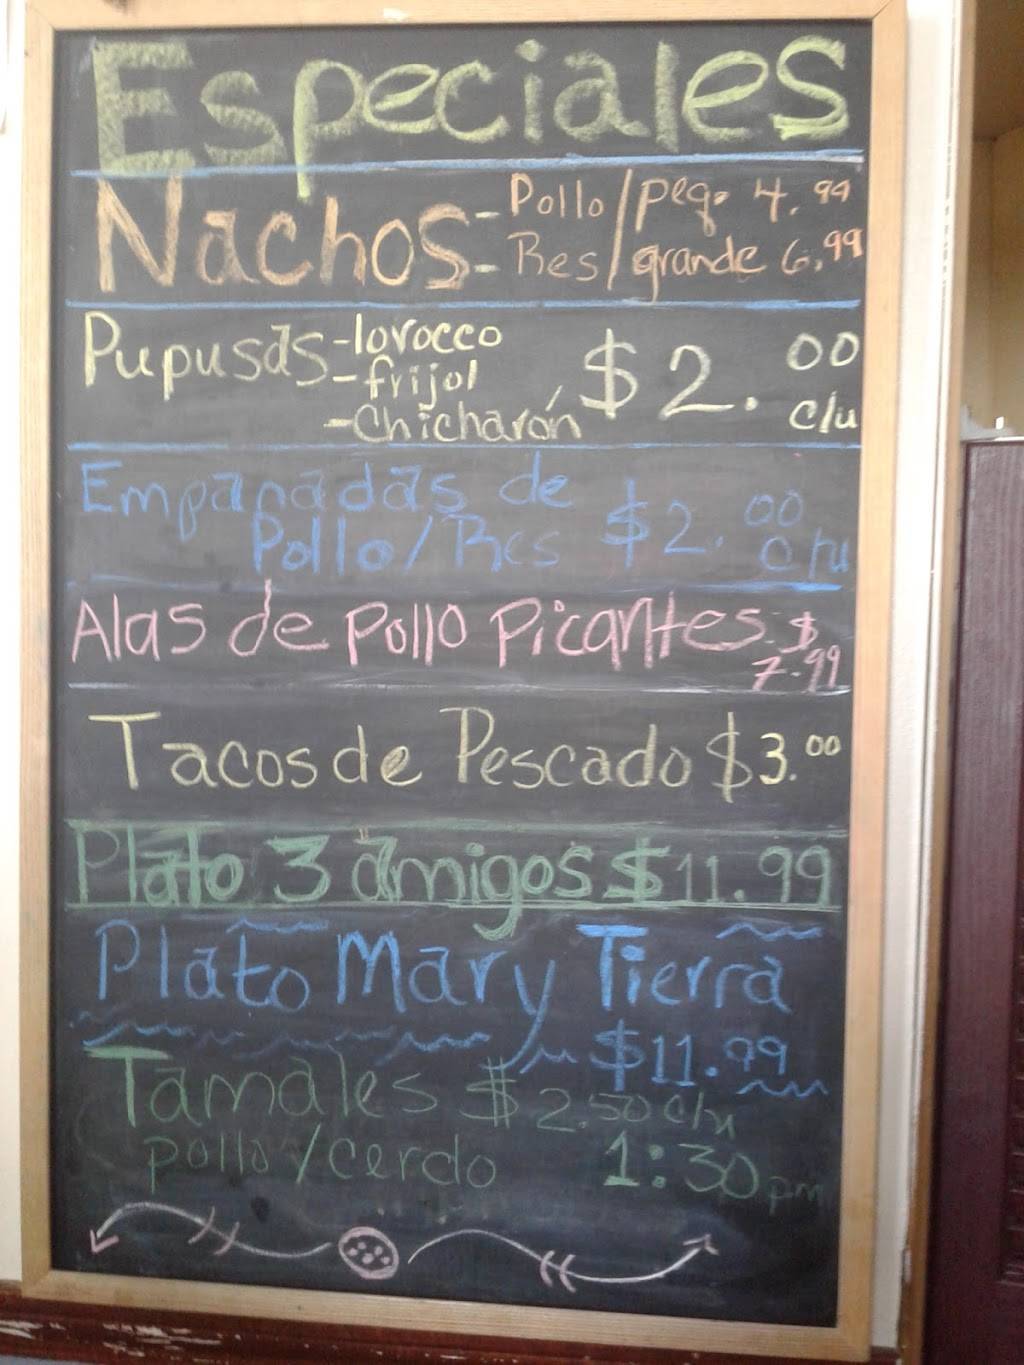 Especiales
Nachos - Pollo / peq. 4.99
- Res / grande 6.99
Pupusas - lorocco
- frijol
- Chicharón $2.00 c/u
Empanadas de
Pollo / Res $2.00 c/u
Alas de Pollo Picantes $7.99
Tacos de Pescado $3.00
Plato 3 amigos $11.99
Plato Mar y Tierra
$11.99
Tamales $2.50 c/u
pollo / cerdo 1:30 pm